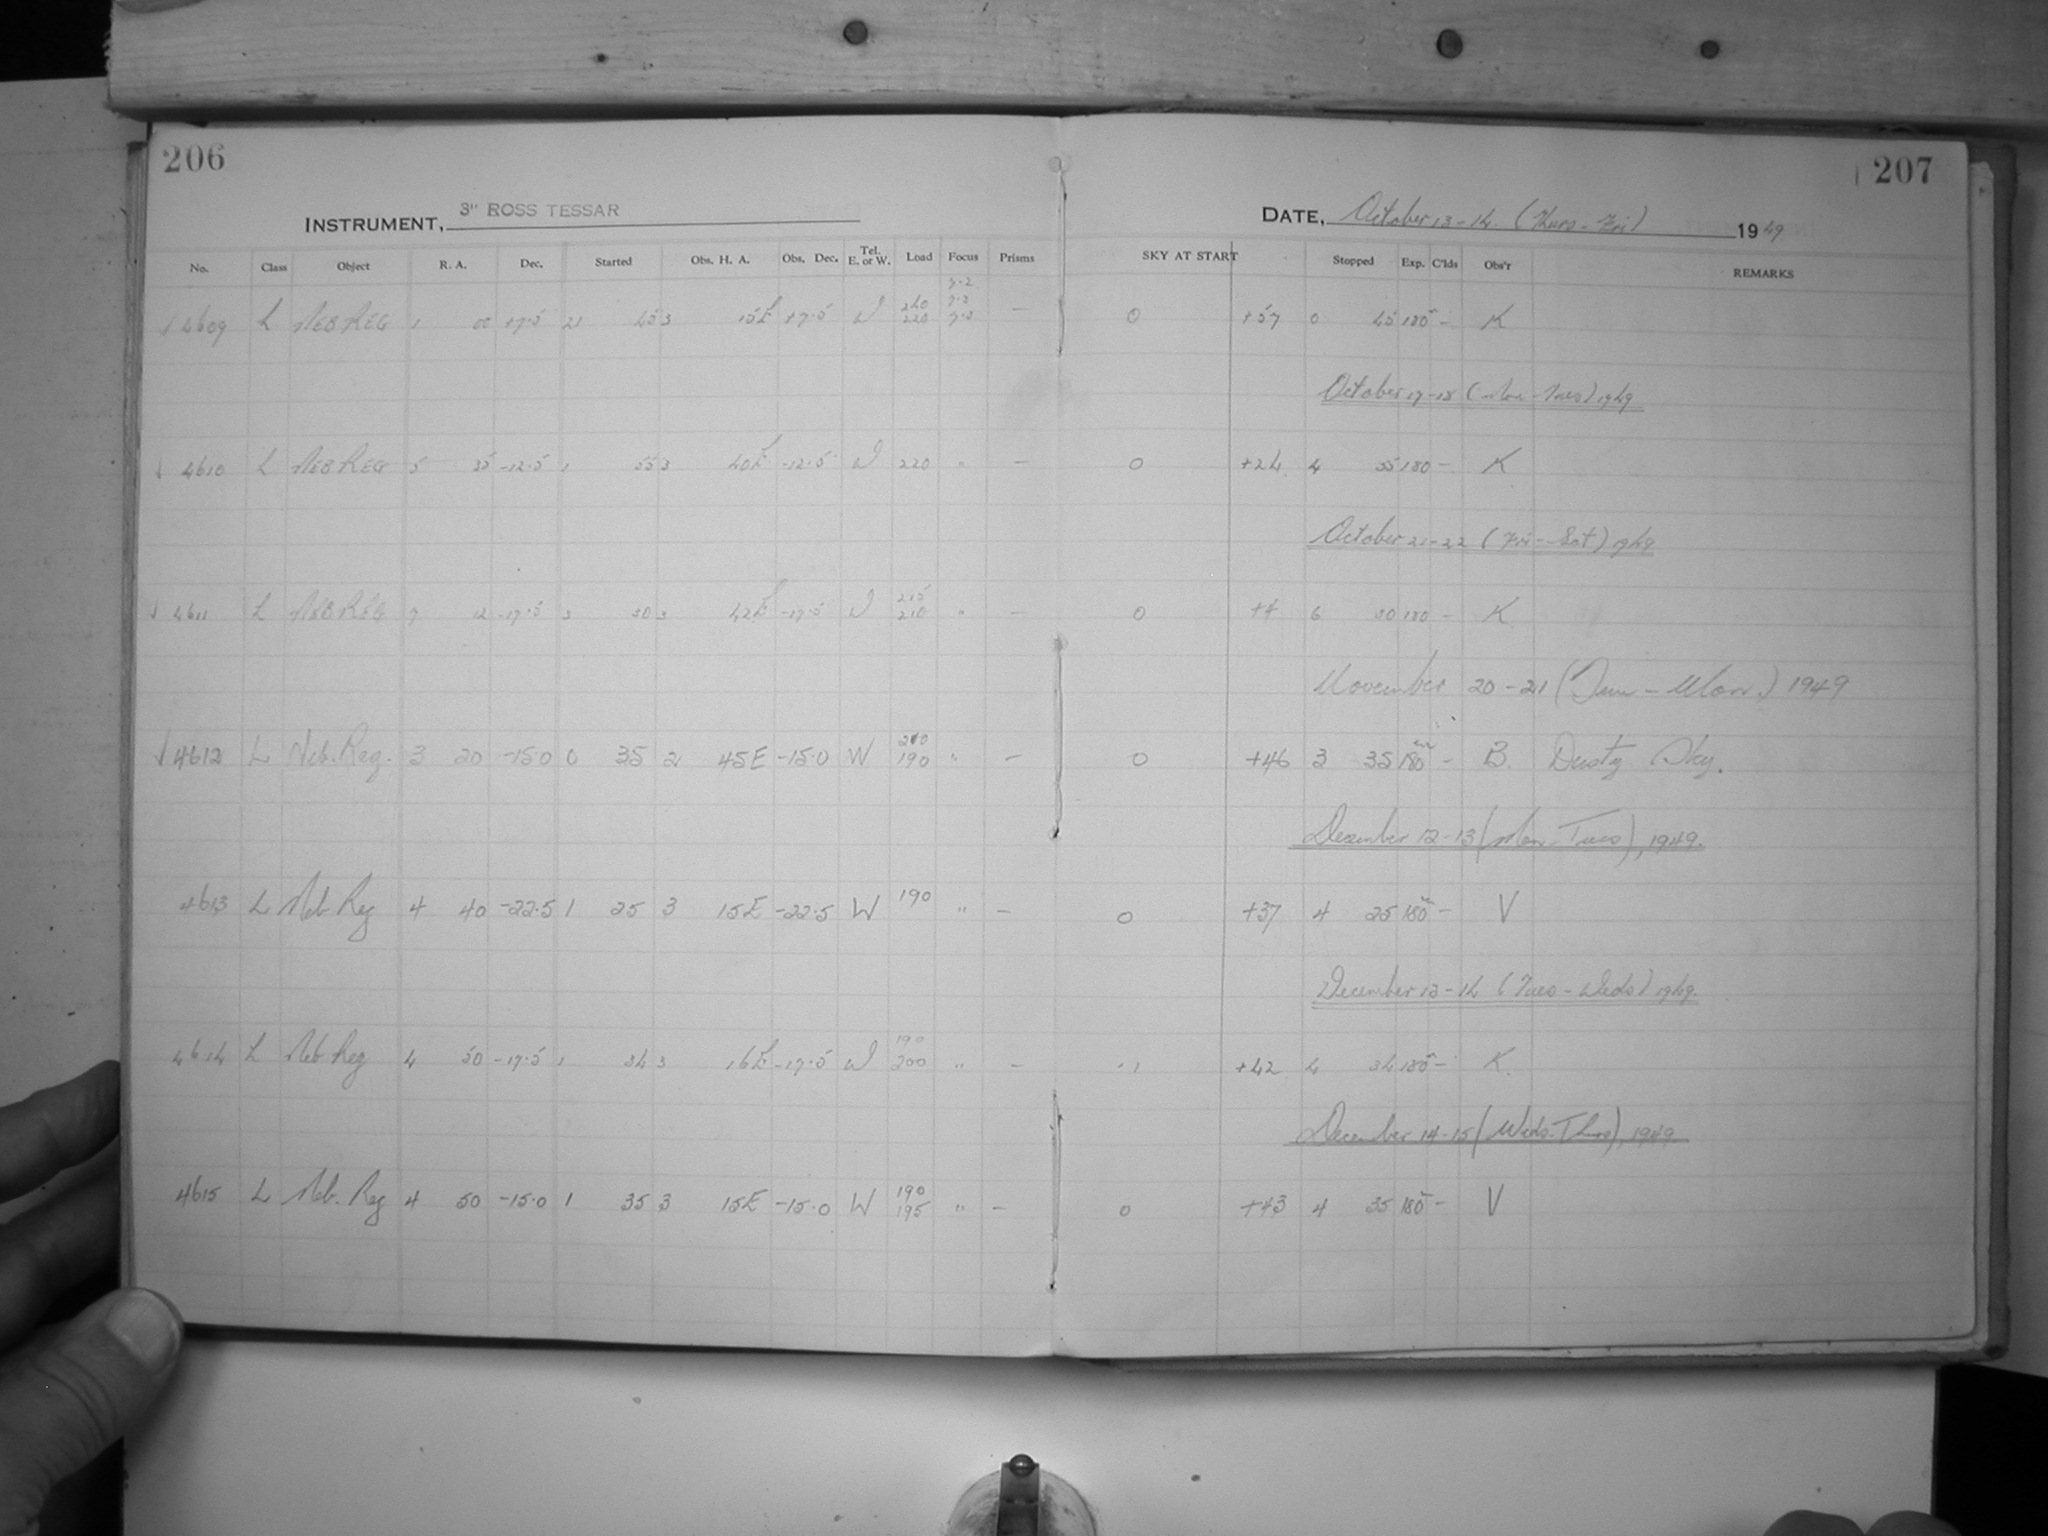 206
207
INSTRUMENT, 3" ROSS TESSAR
DATE, October 13-14. (Thurs-Fri) 1949
No. Class Object R. A. Dec. Started Obs. H. A. Obs. Dec. Tel. E. or W. Load Focus Prisms SKY AT START Stopped Exp. C'lds Obs'r REMARKS
4609 L NEB REG 1 00 +7.5 21 45 3 15E +7.5 W 240 220 — 0 +57 0 45 180 — K
October 17-18 (Mon-Tues) 1949
4610 L NEB REG 5 35 -12.5 1 55 3 40E -12.5 W 220 " — 0 +24 4 55 180 — K
October 21-22 (Fri-Sat) 1949
4611 L NEB REG 7 12 -17.5 3 30 3 42E -17.5 W 215 210 " — 0 +4 6 30 180 — K
November 20-21 (Sun-Mon.) 1949
4612 L Neb. Reg. 3 20 -15.0 0 35 2 45E -15.0 W 210 190 " — 0 +46 3 35 180 — B. Dusty Sky.
December 12-13 (Mon-Tues), 1949.
4613 L Neb Reg 4 40 -22.5 1 25 3 15E -22.5 W 190 " — 0 +37 4 25 180 — V
December 13-14 (Tues-Weds) 1949.
4614 L Neb Reg 4 50 -17.5 1 34 3 16E -17.5 W 190 200 " — +42 4 34 180 — K.
December 14-15 (Weds-Thurs), 1949
4615 L Neb. Reg 4 50 -15.0 1 35 3 15E -15.0 W 190 195 " — 0 +43 4 35 180 — V